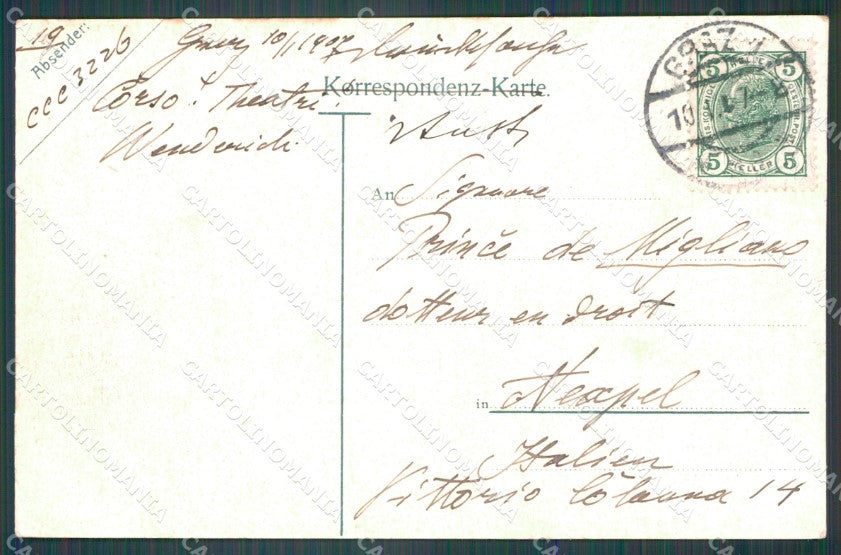 19
Absender:
CCC 3226
10/1 1907
Korrespondenz-Karte.
Corso. Theatre.
An Signore
Prince de Migliano
dotteur en droit
in Neapel
Italien
Vittorio Colonna 14
GRAZ 1
10
5 HELLER 5
5 HELLER 5
CARTOLINOMANIA